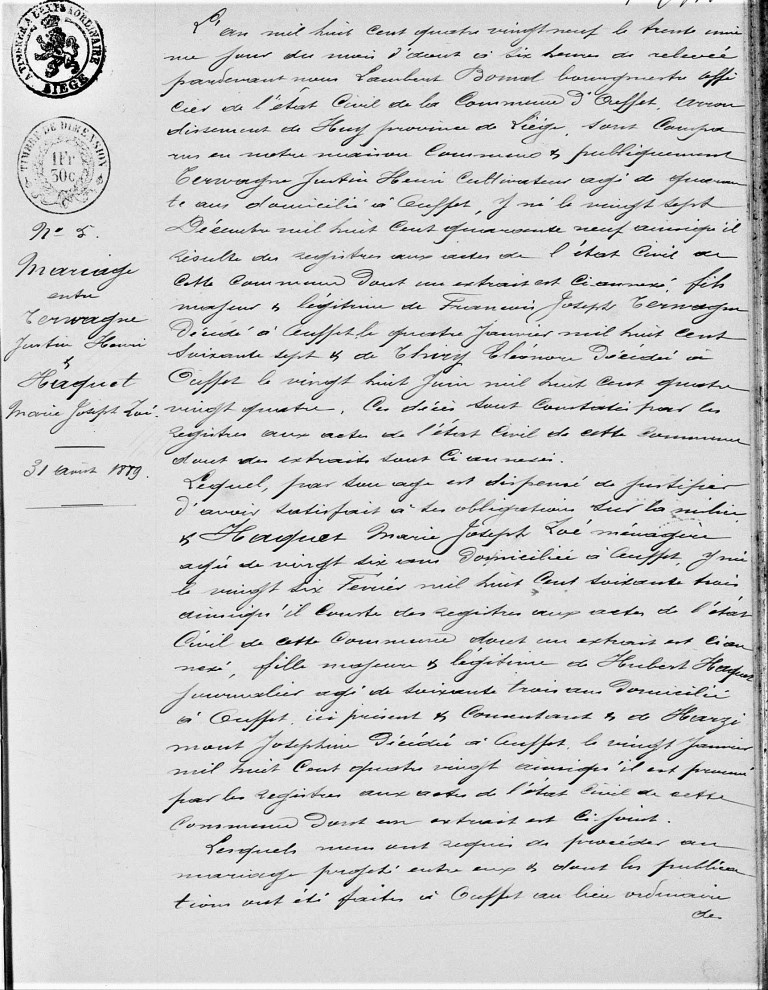 A TIMBRER A L'EXTRAORDINAIRE
LIEGE
TIMBRE DE DIMENSION
1Fr
30c.
No 5.
Mariage
entre
Terwagne
Justin Henri
&
Haquet
Marie Joseph Zoé.
31 août 1889.
L'an mil huit cent quatre vingt neuf le trente unie
me jour du mois d'août à six heures de relevée
pardevant nous Lambert bourgmestre offi
cier de l'état Civil de la Commune d'Ouffet, arron
dissement de Huy province de Liège, sont Compa
rus en notre maison Commune & publiquement
Terwagne Justin Henri Cultivateur agé de quaran
te ans domicilié à Ouffet, y né le vingt sept
Décembre mil huit Cent quarante neuf ainsiqu'il
résulte des registres aux actes de l'état Civil de
cette Commune dont un extrait est ciannexé, fils
majeur & légitime de François Joseph Terwagne
Décédé à Ouffet le quatre Janvier mil huit Cent
soixante sept & de Eléonore Décédée à
Ouffet le vingt huit Juin mil huit Cent quatre
vingt quatre. Ces décès sont Constatés par les
registres aux actes de l'état Civil de cette Commune
dont des extraits sont Ciannexés.
Lequel, par son age est dispensé de justifier
d'avoir satisfait à ses obligations sur la milice
& Haquet Marie Joseph Zoé ménagère
agée de vingt six ans Domiciliée à Ouffet, y née
le vingt six Fevrier mil huit Cent soixante trois
ainsiqu'il Conste des registres aux actes de l'état
Civil de cette Commune dont un extrait est cian
nexé, fille majeure & légitime de Hubert Haquet
Journalier agé de soixante trois ans Domicilié
à Ouffet, ici présent & Consentant & de Harzi
mont Joséphine Décédée à Ouffet, le vingt Janvier
mil huit Cent quatre vingt ainsiqu'il est prouvé
par les registres aux actes de l'état Civil de cette
Commune Dont un extrait est Cijoint.
Lesquels nous ont requis de procéder au
mariage projeté entre eux & dont les publica
tions ont été faites à Ouffet au lieu ordinaire
des